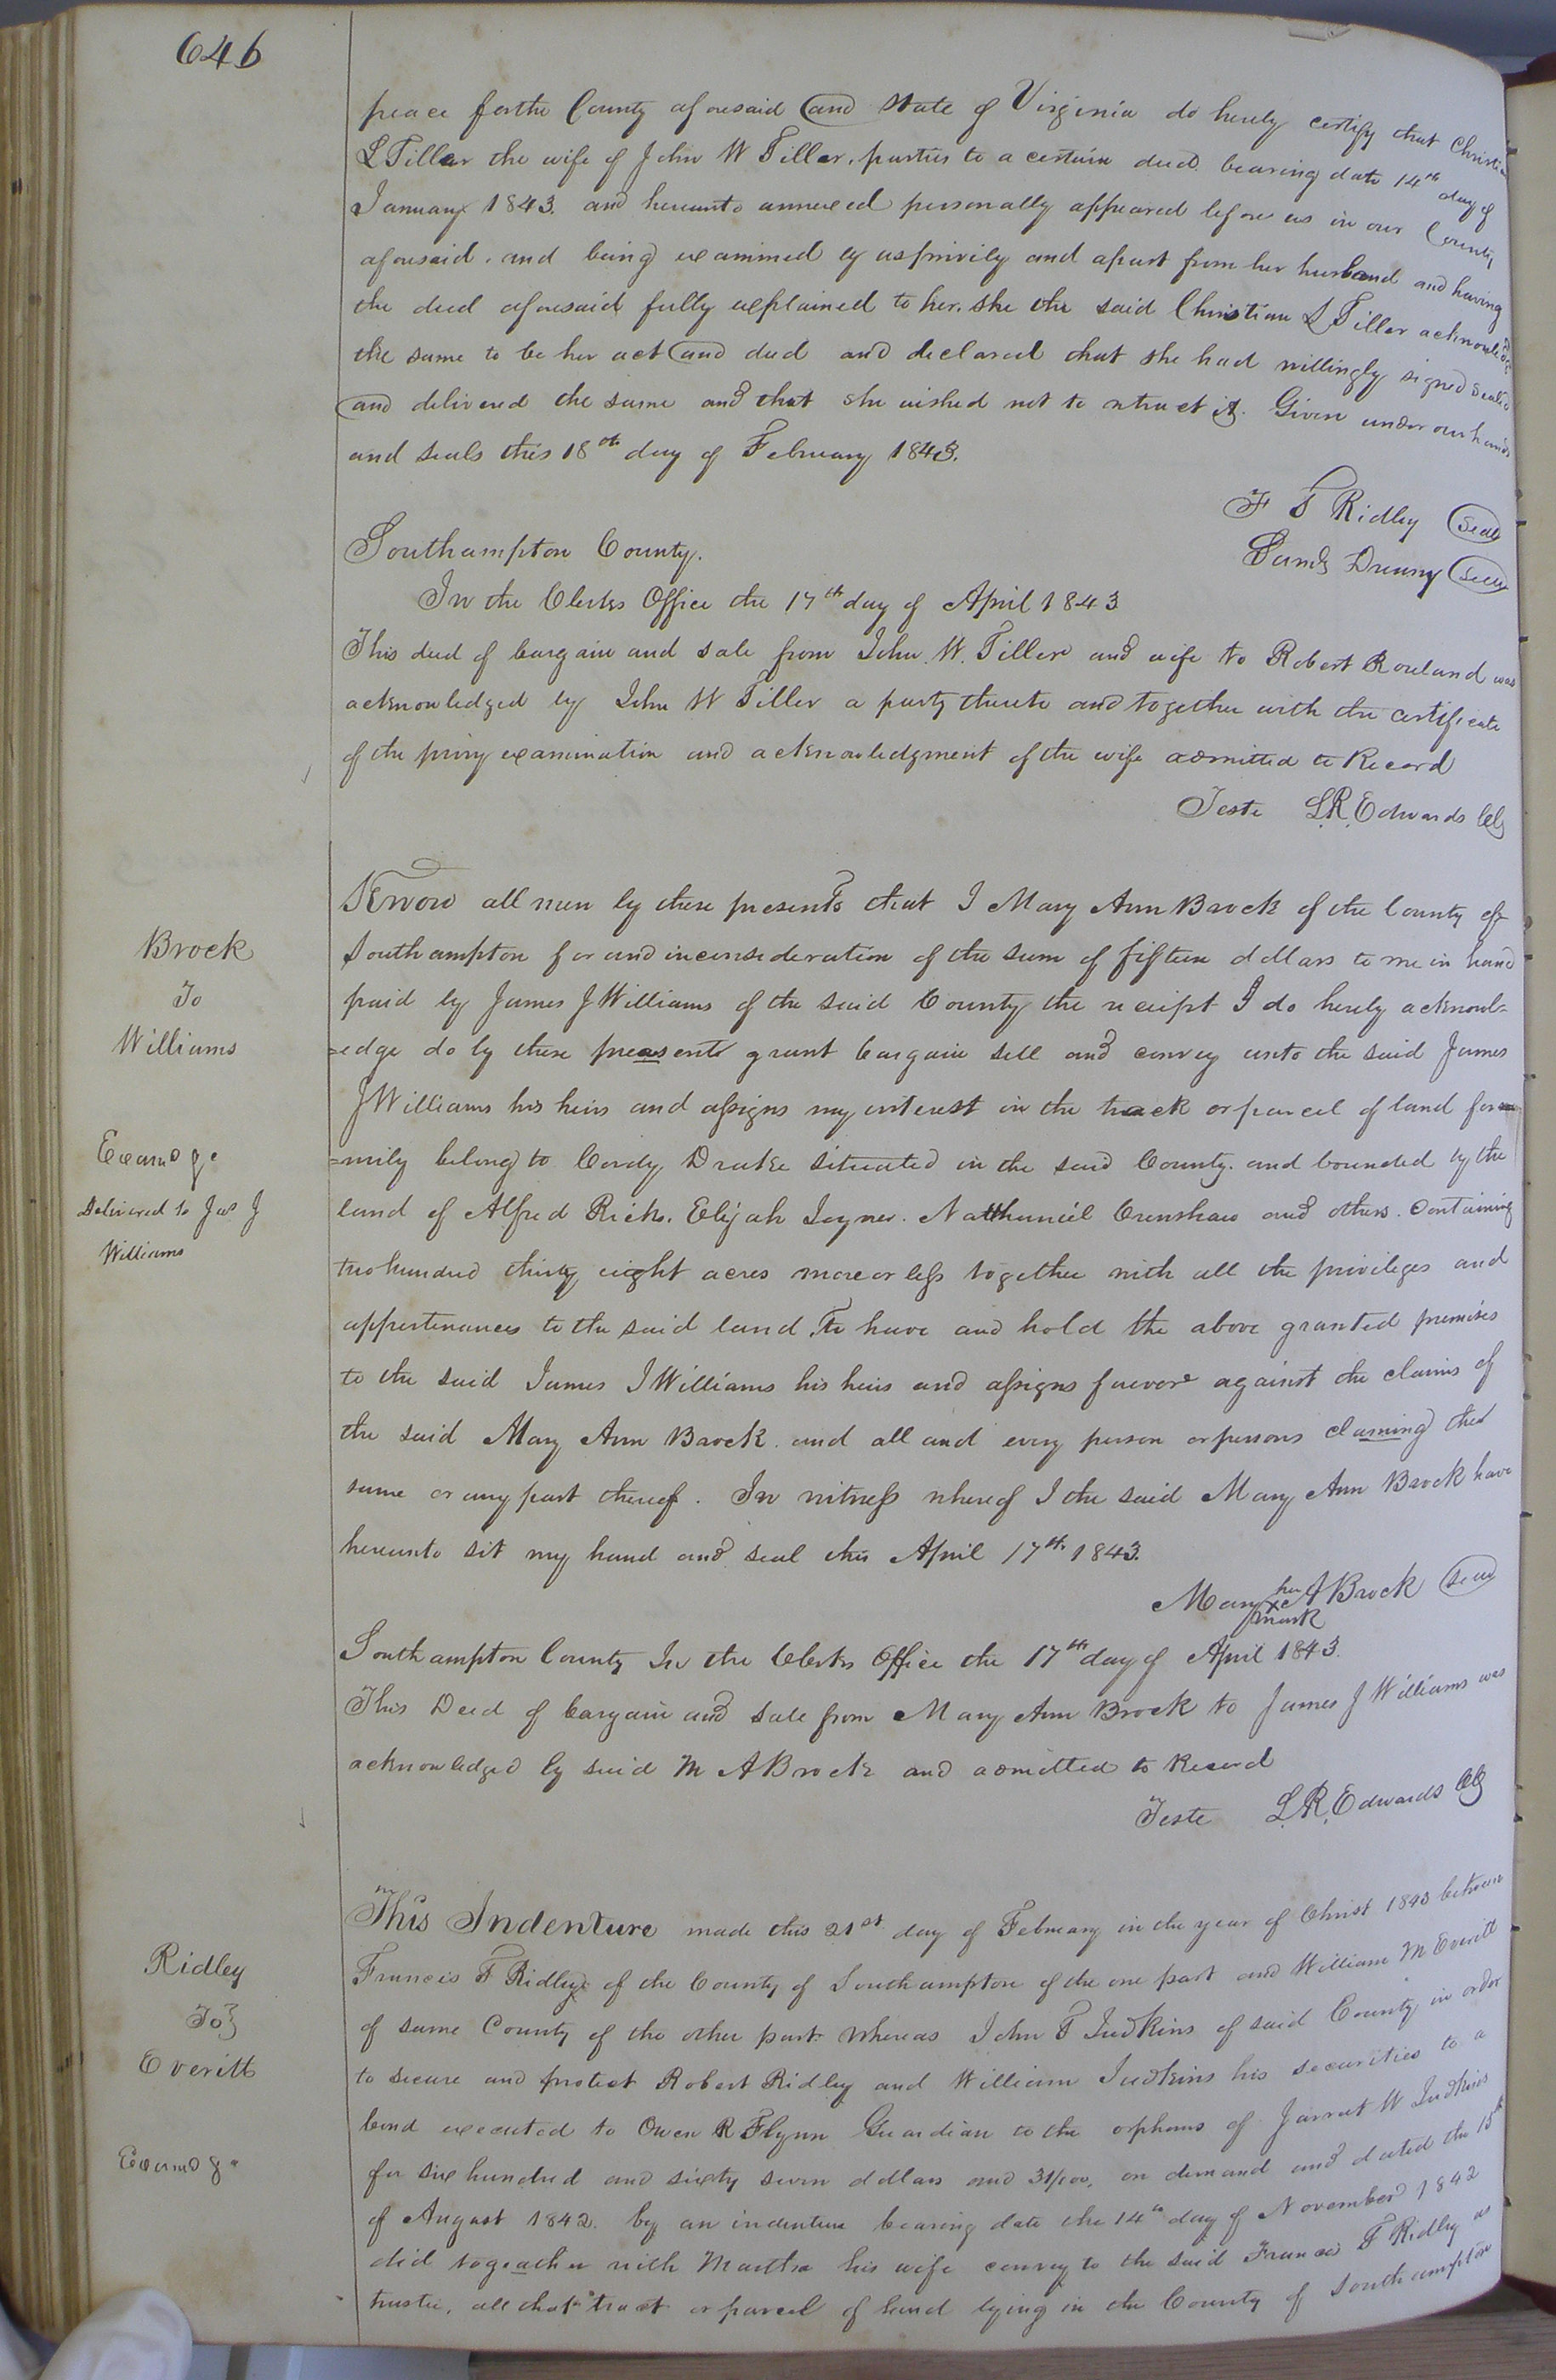 646
peace forthe County aforesaid and State of Virginia do hereby certify that Christian
L Tiller the wife of John W Tiller, parties to a certain deed bearing date 14th day of
January 1843. and hereunto annexed personally appeared before us in our County
aforesaid. and being examined by us privily and apart from her husband and having
the deed aforesaid fully explained to her, she the said Christian L Tiller acknowledged
the same to be her act and deed and declared that she had willingly signed sealed
and delivered the same and that she wished not to retract it. Given under our hands
and seals this 18th day of February 1843.
F T Ridley Seal
Drewry Seal
Southampton County.
In the Clerks Office the 17th day of April 1843
This deed of bargain and sale from John W. Tiller and wife to Robert Rowland was
acknowledged by John W Tiller a party thereto and together with the certificate
of the privy examination and acknowledgment of the wife admitted to Record
Teste L.R. Edwards Clk
Brock
To
Williams
Know all men by these presents that I Mary Ann Brock of the County of
Southampton for and in consideration of the sum of fifteen dollars to me in hand
paid by James J Williams of the said County the receipt I do hereby acknowl-
=edge do by these preasents grant bargain sell and convey unto the said James
J Williams his heirs and assigns my interest in the track or parcel of land for
=merly belong to Cordy Drake situated in the said County. and bounded by the
land of Alfred Ricks. Elijah Joyner. Nathaniel Crenshaw and others. Containing
two hundred thirty eight acres more or less together with all the privileges and
appertenances to the said land. To have and hold the above granted premises
to the said James J Williams his heirs and assigns forever against the claims of
the said Mary Ann Brock. and all and every person or persons claming the
same or any part thereof. In witness whereof I the said Mary Ann Brock have
hereunto sit my hand and seal this April 17th 1843.
Examd
Delivered to Jas J
Williams
Mary her x mark A Brock Seal
Southampton County In the Clerks Office the 17th day of April 1843.
This Deed of bargain and sale from Mary Ann Brock to James J Williams was
acknowledged by said M A Brock and admitted to Record
Teste L.R. Edwards Clk
Ridley
To}
Everitt
Examd
This Indenture made this 21st day of February in the year of Christ 1843 between
Francis T Ridley of the County of Southampton of the one part and William M Everitt
of same County of the other part. Whereas John T Judkins of said County in order
to secure and protect Robert Ridley and William Judkins his securities to a
bond executed to Owen R Flynn Guardian to the orphans of Jarrat W Judkins
for six hundred and sixty seven dollars and 31/100. on demand and dated the 15th
of August 1842. by an indenture bearing date the 14th day of November 1842
did togeather with Martha his wife convey to the said Francis T Ridley as
trustee, all that tract or parcel of land lying in the County of Southampton